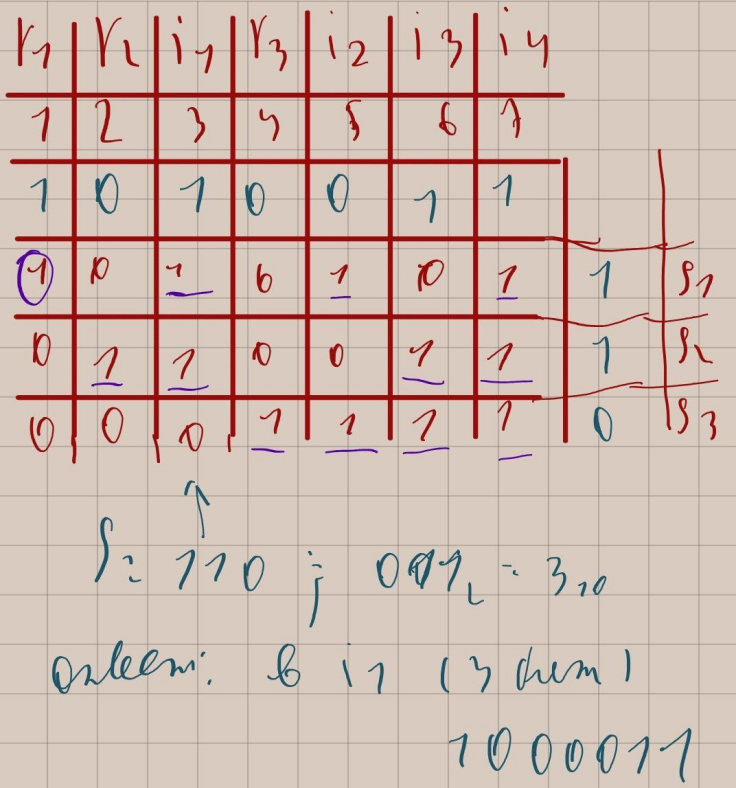 r1 r2 i1 r3 i2 i3 i4
1 2 3 4 5 6 7
1 0 1 0 0 1 1
1 0 1 0 1 0 1 1 S1
0 1 1 0 0 1 1 1 S2
0 0 0 1 1 1 1 0 S3
S = 110 ; 011₂ = 3₁₀
в i1 (3
1000011